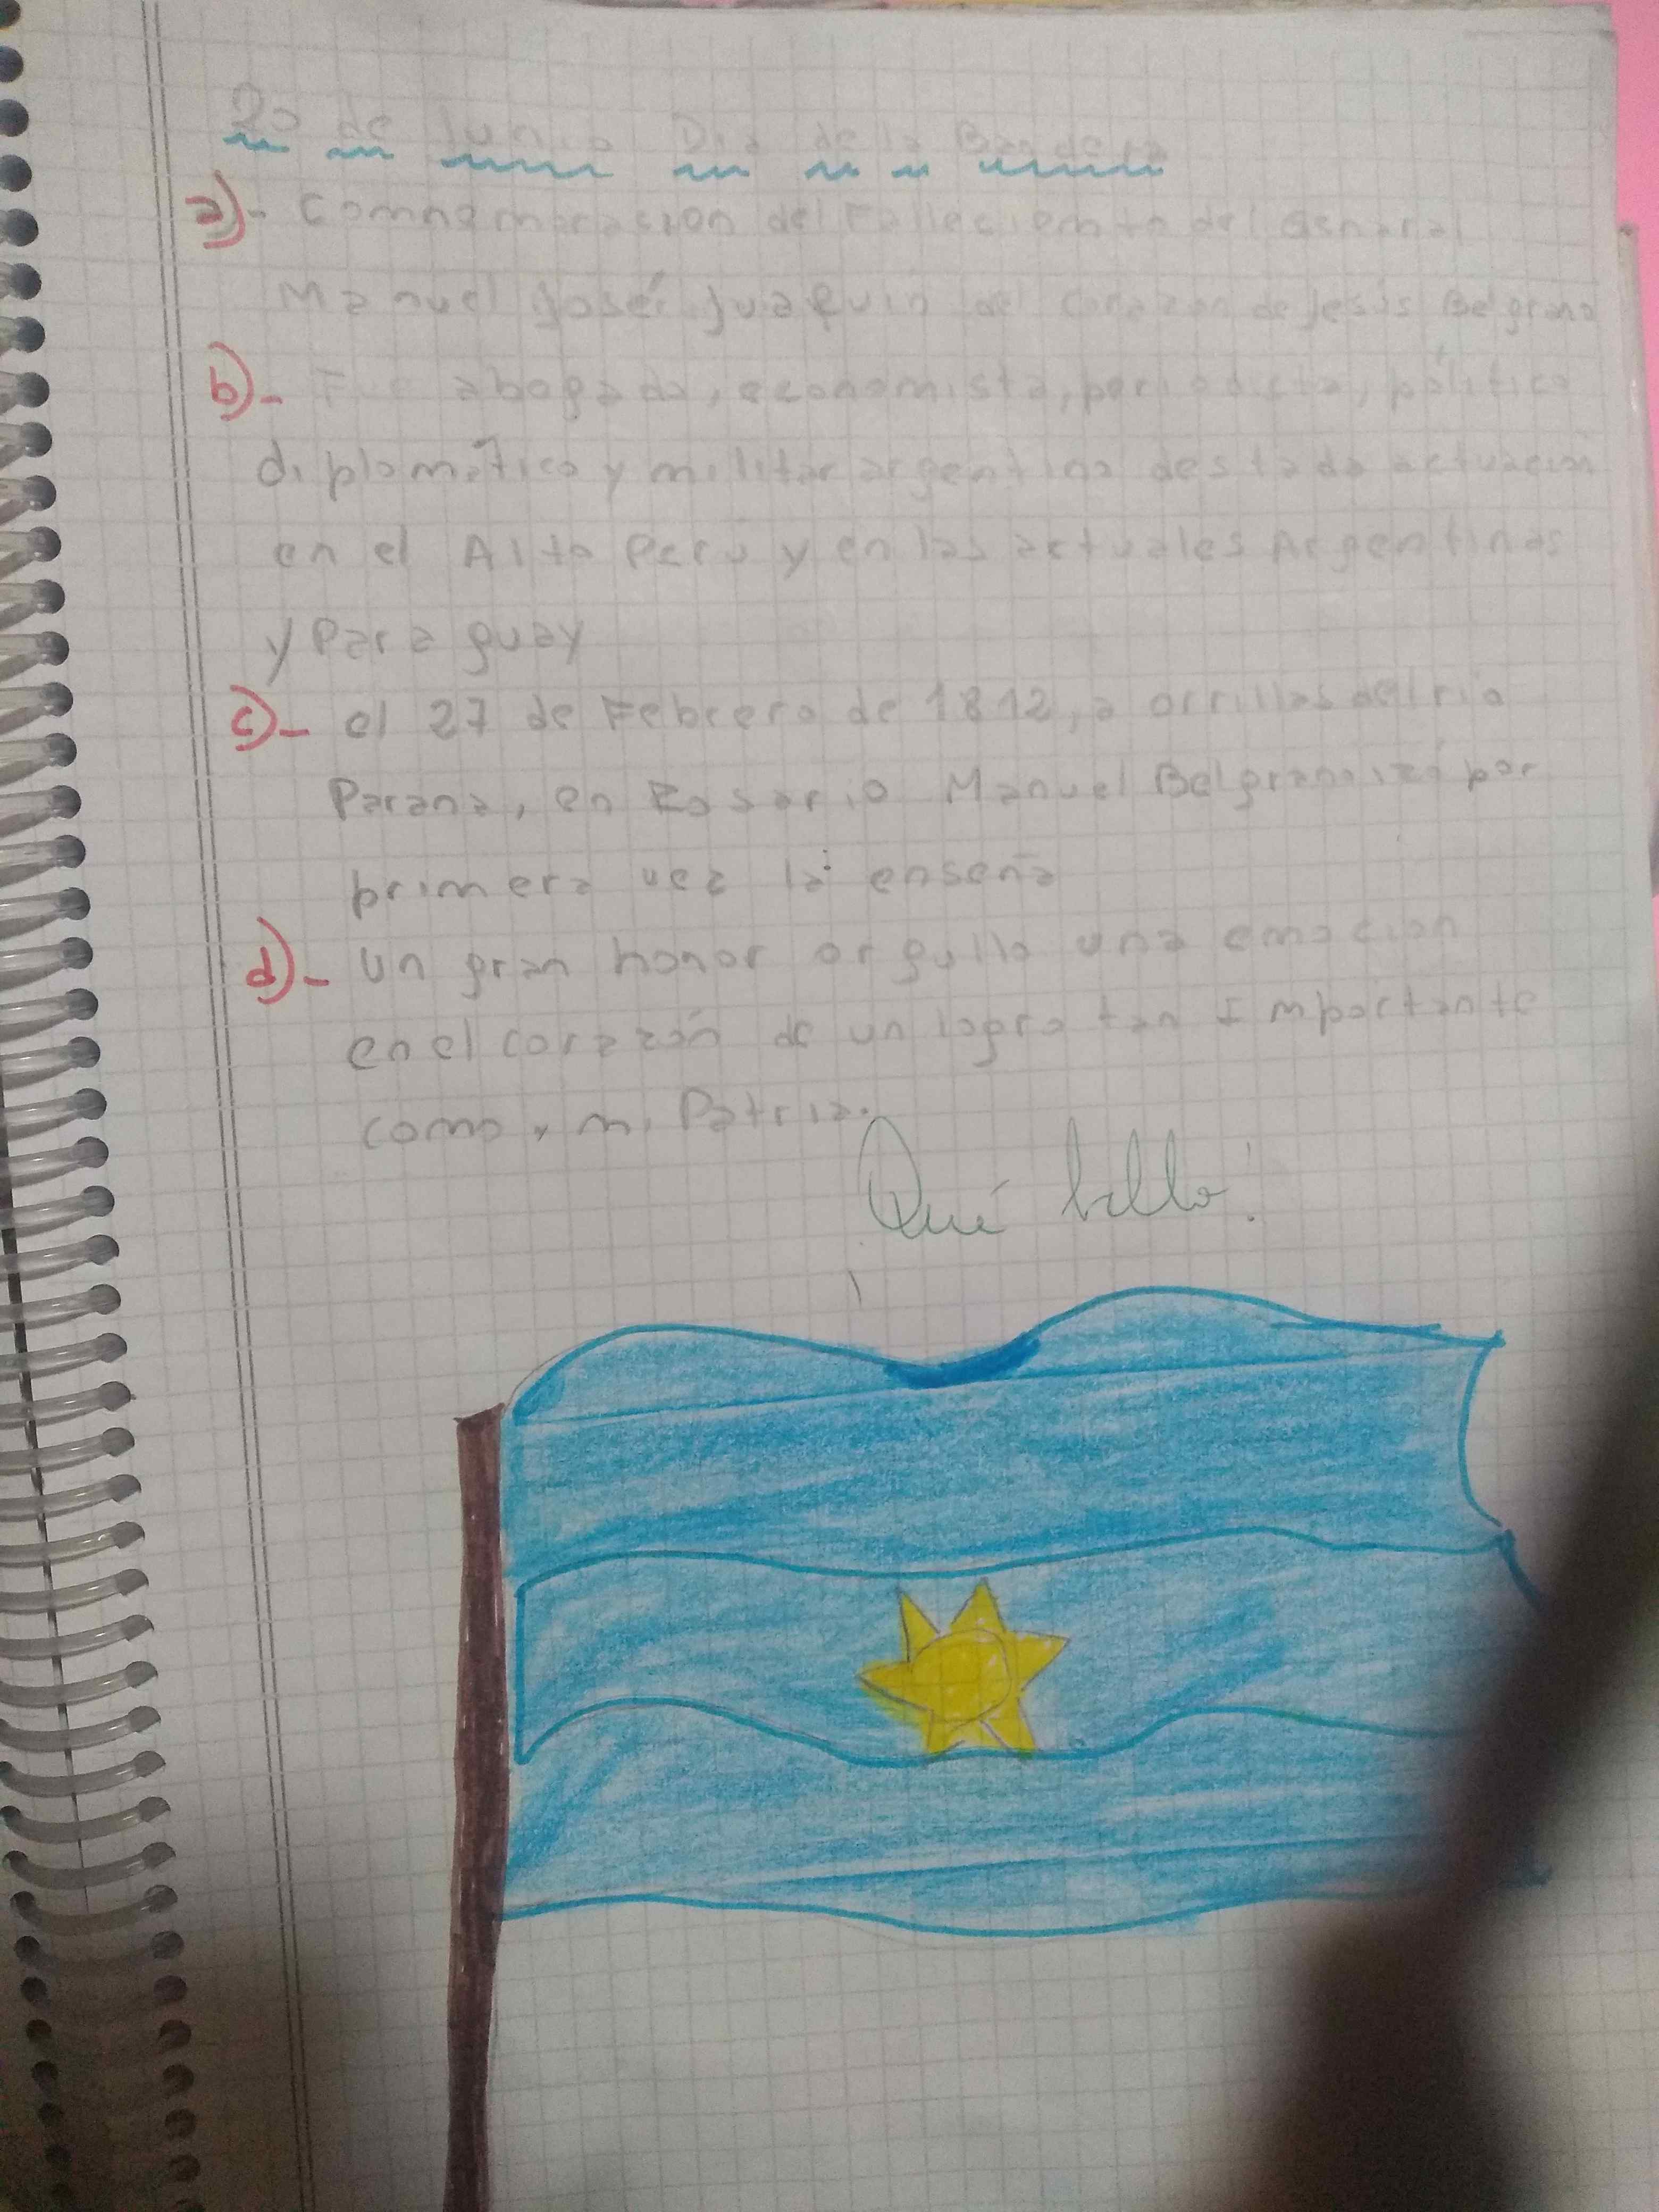 20 de Junio Dia de la Bandera
a)- Commamorasion del Falleciemto del Genaral
Manuel José Juaquin del Corazon de Jesús Belgrano
b)- Fue abogado, economista, periodista, político
diplomático y militar argentino destada actuación
en el Alto Perú y en las actuales Argentinas
y Paraguay
c)- el 27 de Febrero de 1812, a orrillas del río
Parana, en Rosario Manuel Belgrano izó por
primera vez la enseña
d)- un gran honor orgullo una emocion
en el corazón de un logro tan Importante
como, mi Patria.
Qué bello!